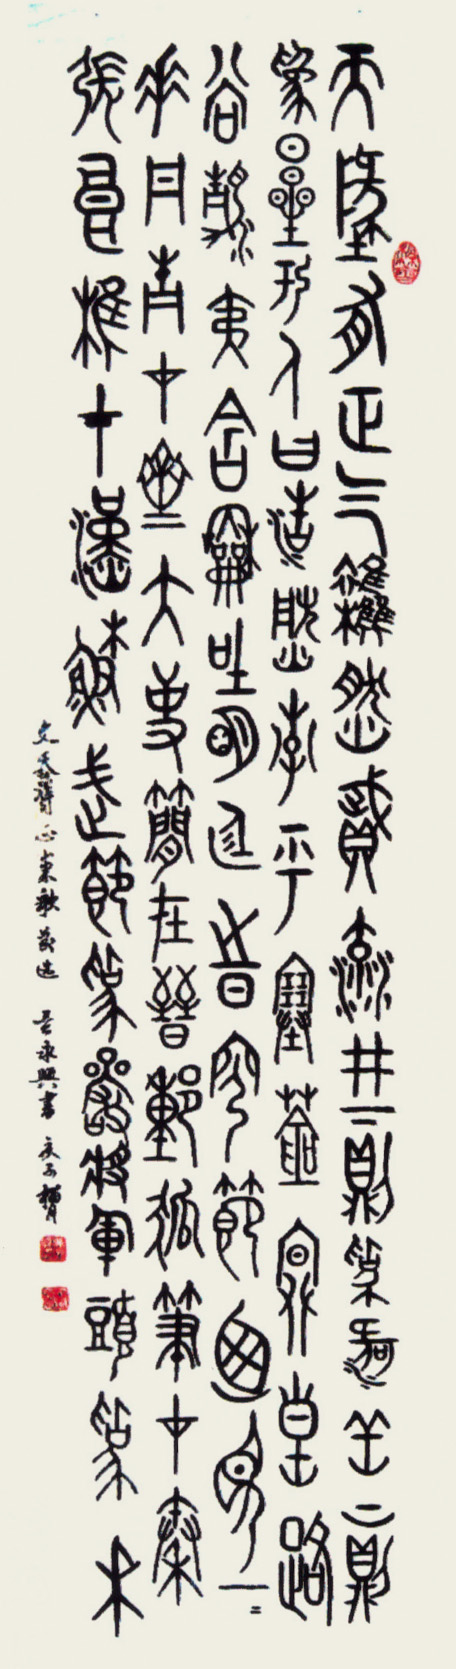 天地有正气雜然賦流形下則為河嶽上則
為日星於人曰浩然沛乎塞蒼冥皇路
當清夷含和吐明廷時窮節乃見一一
垂丹青在齊太史簡在晉董狐筆在秦
張良椎在漢蘇武節為嚴將軍頭為
文天祥正氣歌節选 永興書 庚子臘月